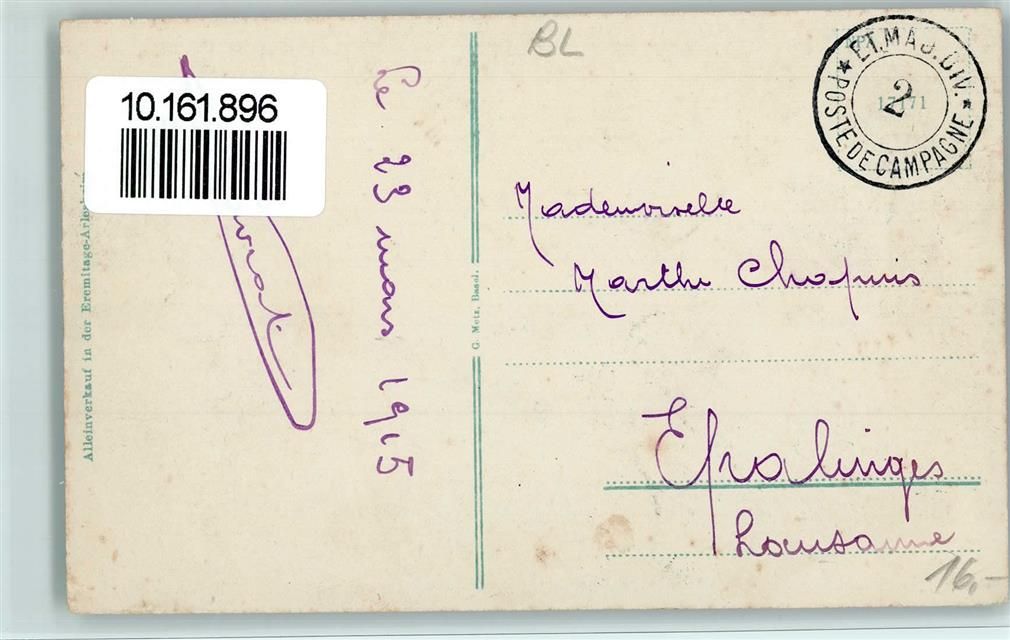 10.161.896
Alleinverkauf in der Eremitage-Arlesheim
Le 23 mars 1915
G. Metz, Basel.
BL
ET. MAJ. DIV.
2
POSTE DE CAMPAGNE
17171
Mademoiselle
Marthe Chapuis
Epalinges
Lausanne
16.-